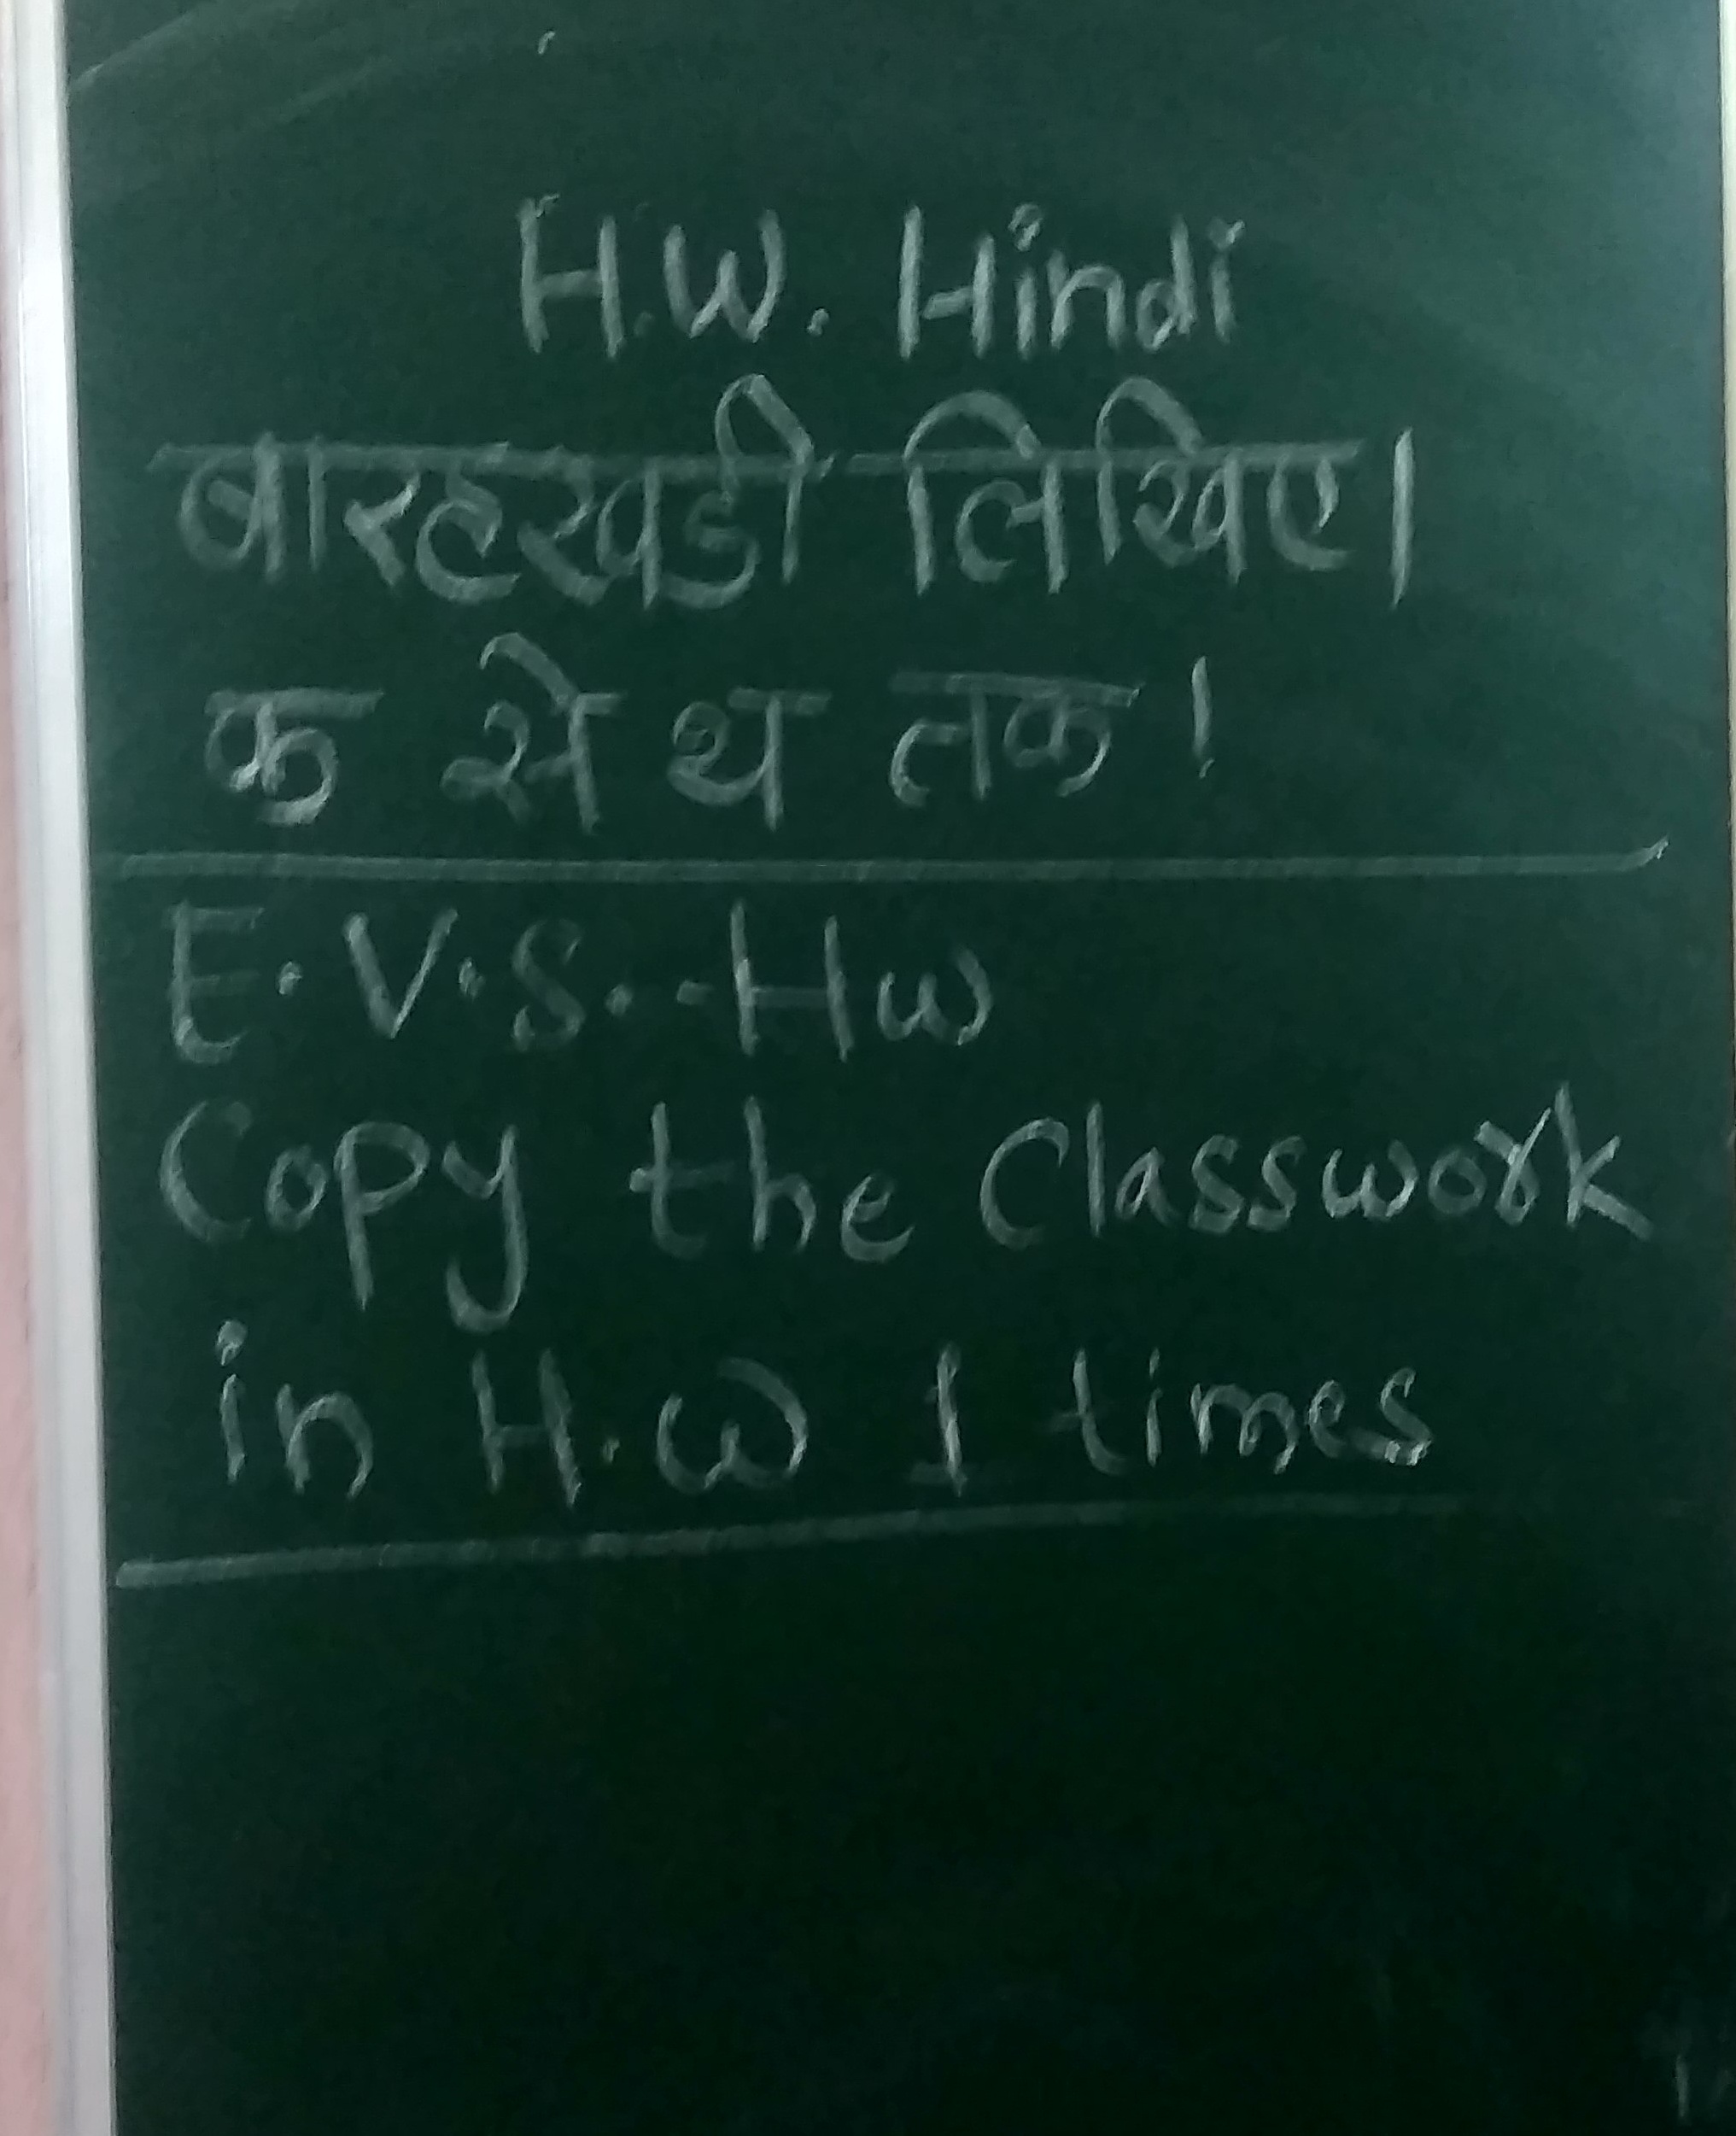 H.W. Hindi
बारहखडी लिखिए।
क से थ तक।
E.V.S.-HW
Copy the Classwork
in H.W 1 times